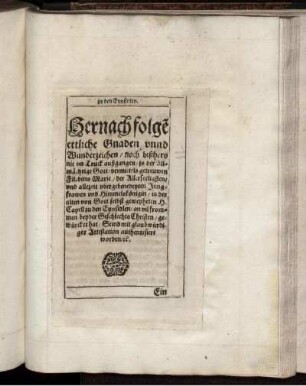 zu den Eynsidlen.
Hernach folgẽ
ettliche Gnaden vnnd
Wunderzeichen / noch bißhero
nie im Truck außgangen / so der All-
mächtige Gott / vermittels getrewen
Für-
vnd allzeit vnbefleckten Jung-
frawen vnd Himmelskönigin / in der
alten von Gott selbst geweyheten H.
Capell zu den Eynsidlen / an vil from-
men beyder Geschlechts Christen / ge-
würcket hat / Seind mit glaubwürdi-
gen Attestation authentisiert
worden / ꝛc.
Ein